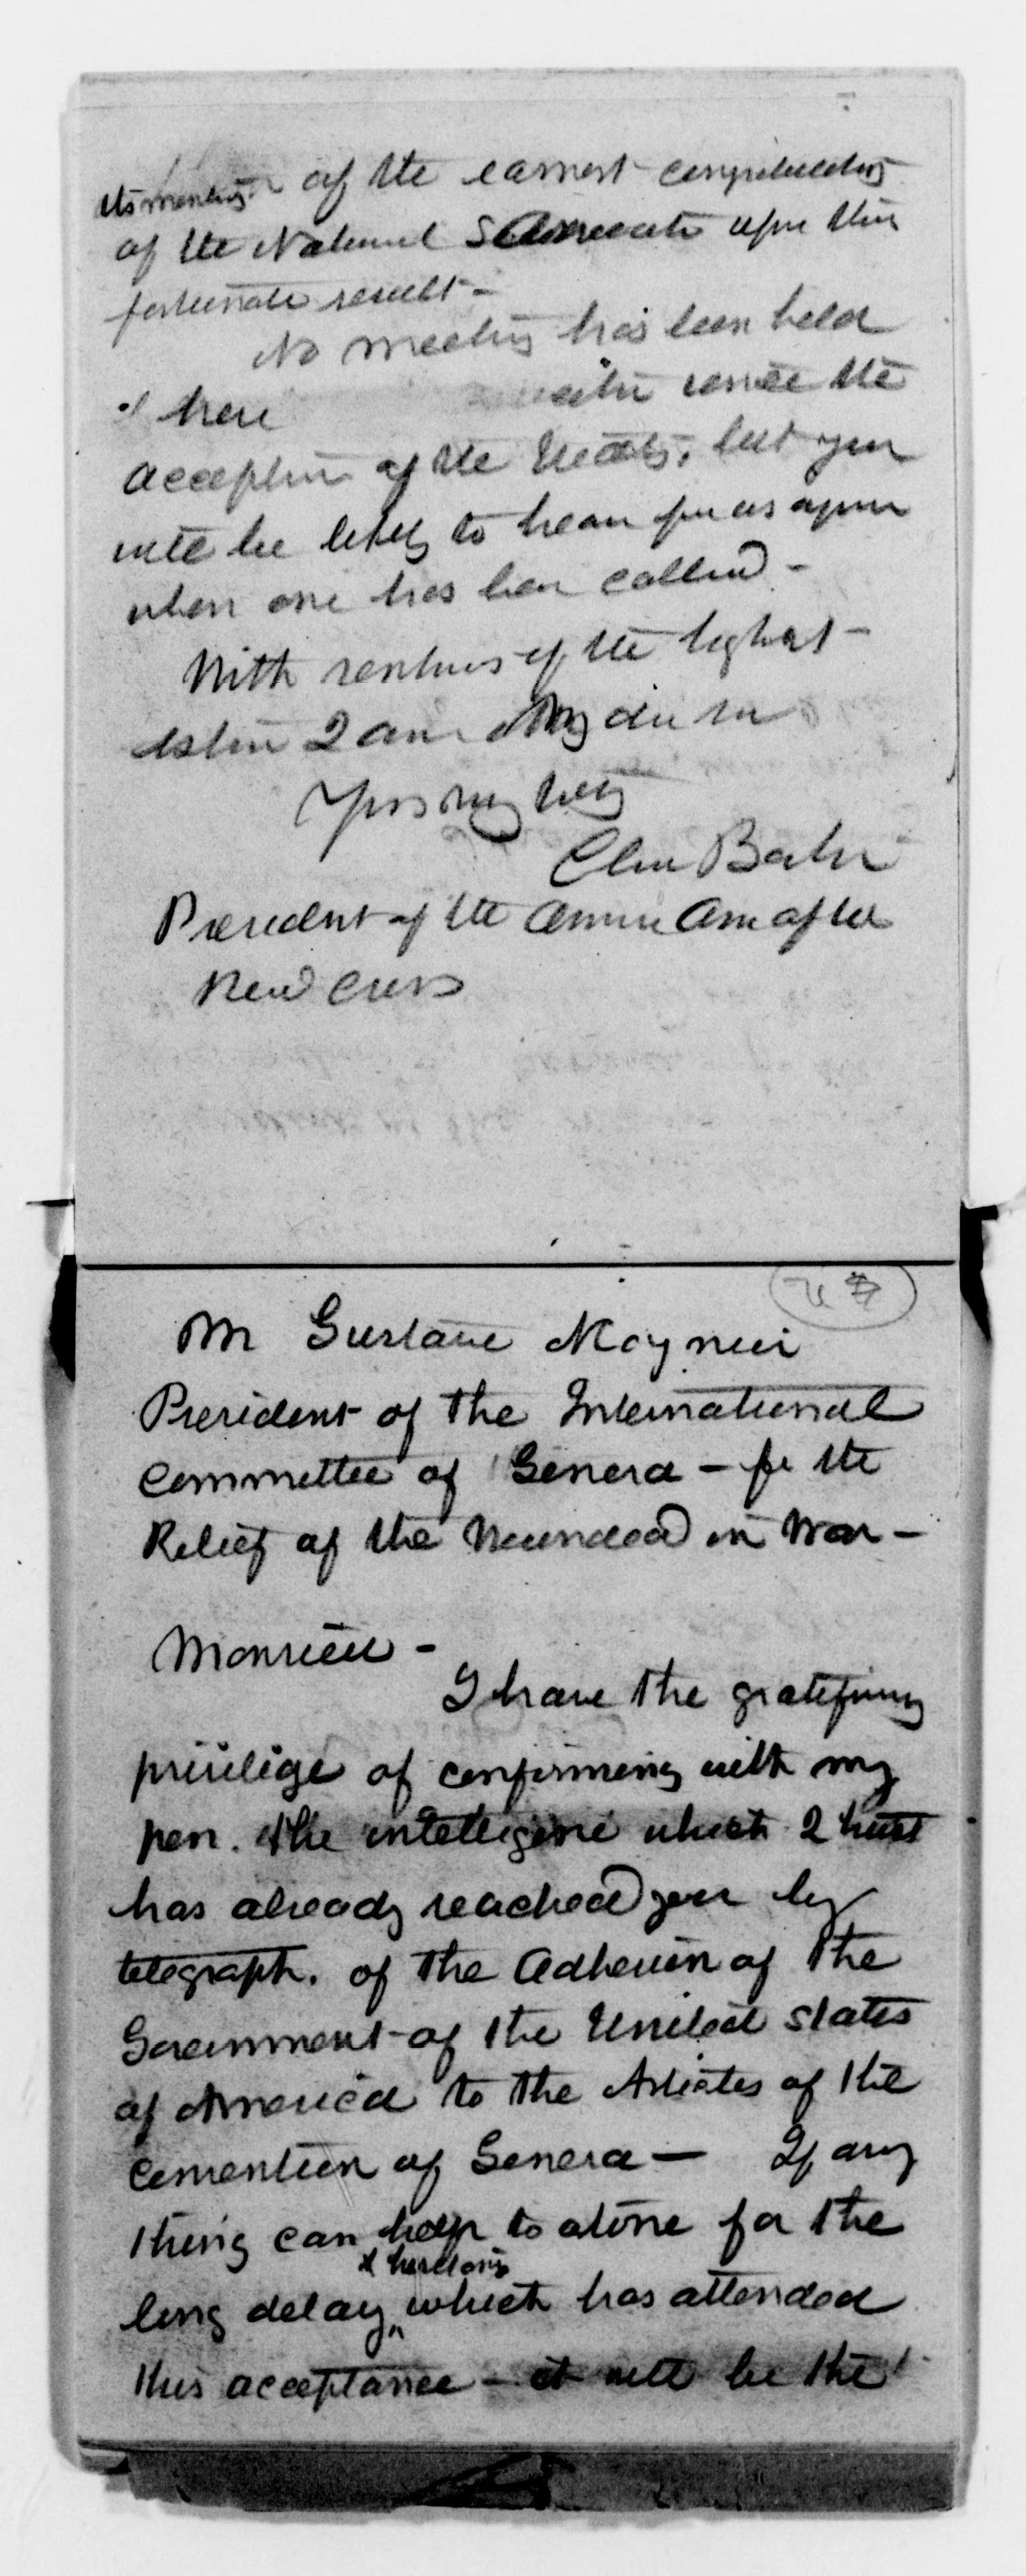 of the earnest congratulations
of the National Associate upon this
fortunate result -
No meeting has been held
here since the
acception of the Treaty, but you
will be likely to hear from us again
when one has been called -
With sentiments of the highest
esteem I am My dear Sir
Yours very truly
Clara Barton
President of the American Assn of the
Red Cross
M Gustave Moynier
President of the International
Committee of Geneva - for the
Relief of the Wounded in War -
Monsieur -
I have the gratifying
privilige of confirming with my
pen. the intelligence which I trust
has already reached you by
telegraph. of the Adhesion of the
Government of the United States
of America to the Articles of the
Convention of Geneva — If any
thing can help to atone for the
& hesitation
long delay, which has attended
this acceptance - it will be the